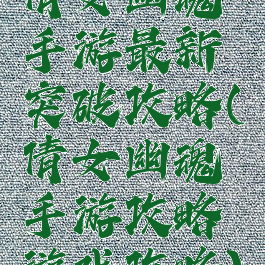 倩女幽魂
手游最新
突破攻略(
倩女幽魂
手游攻略
游戏攻略)